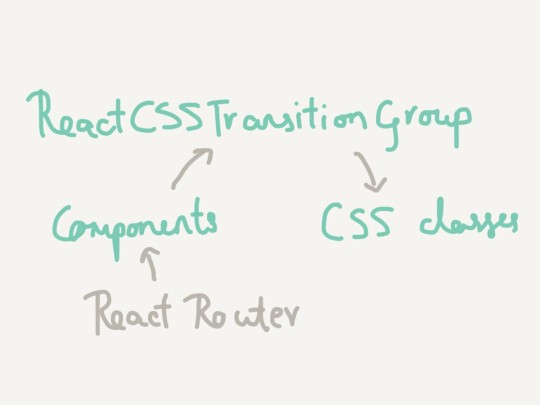 ReactCSSTransitionGroup
Components CSS classes
React Router